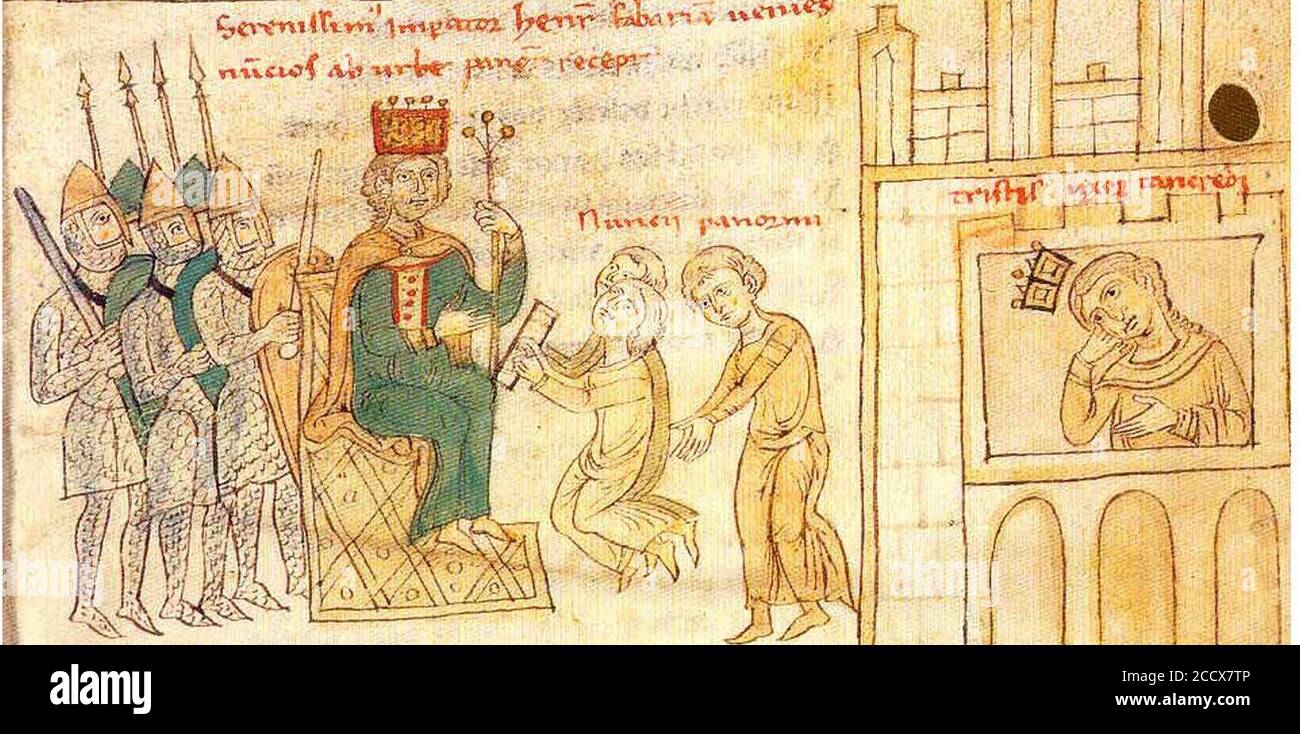 Serenissim' Impator henr̄ fabariā veniēs
nūcios ab urbe panoꝝ recepit
Nuncii panormi
tristis uxor tancredi
alamy
Image ID: 2CCX7TP
www.alamy.com